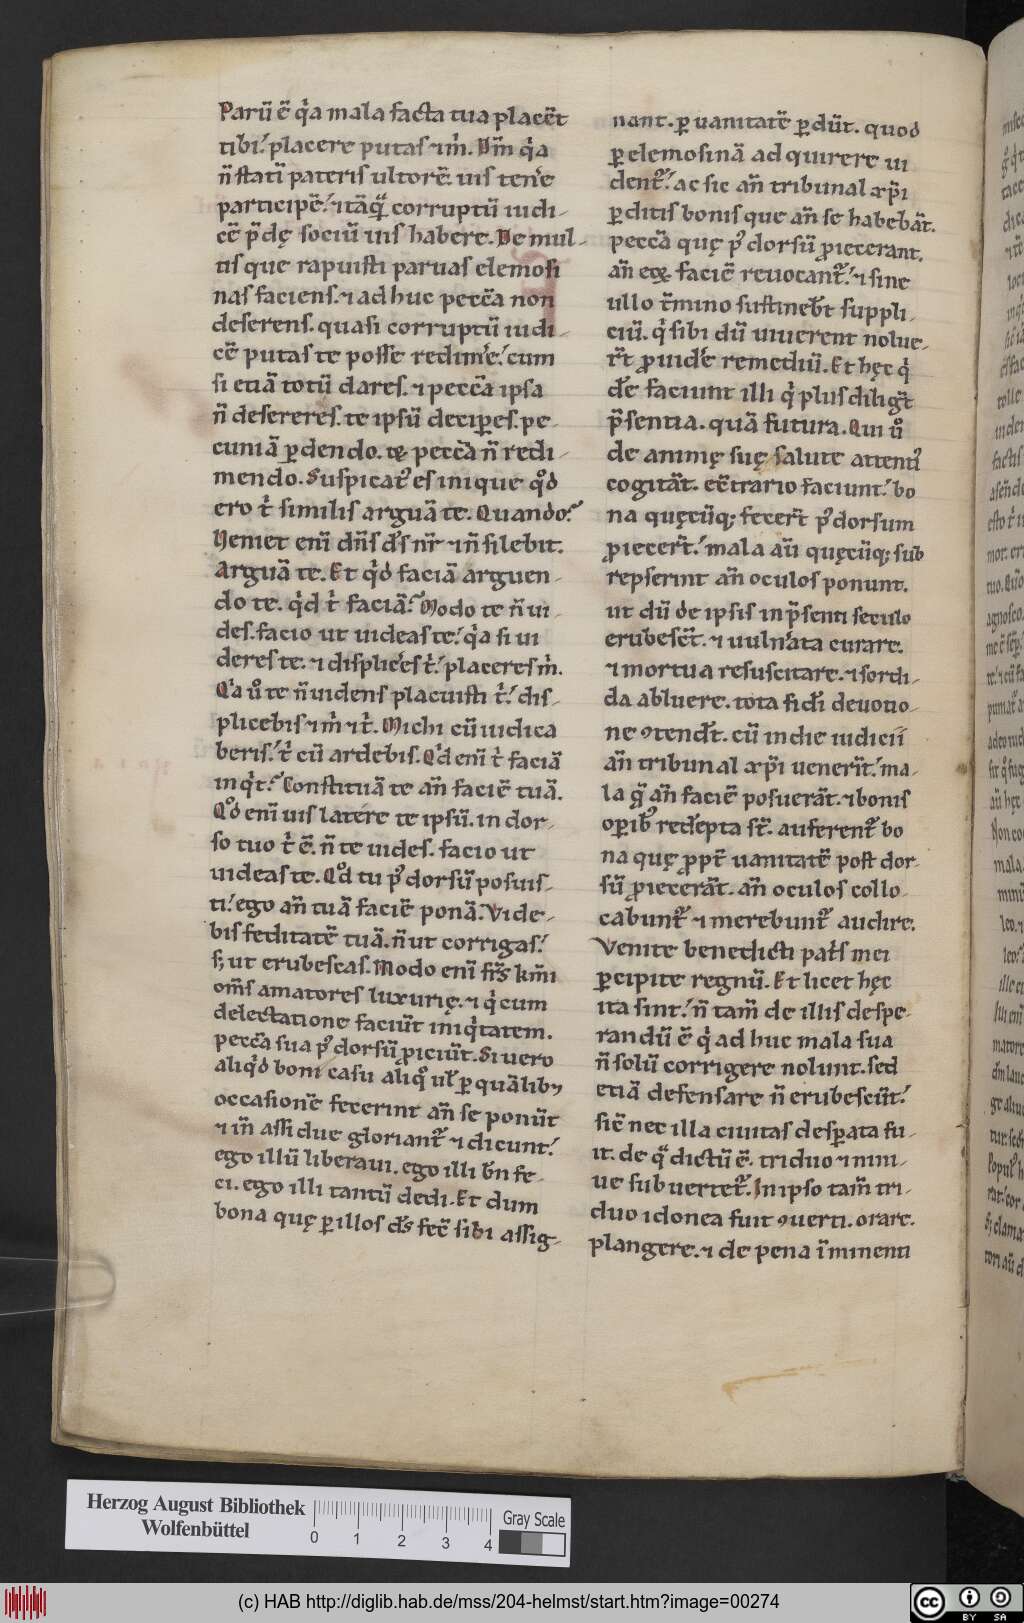 Parū ē q̇a mala facta tua placēt
tibi. placere putas ⁊ m̓. Dm̄ q̇a
n̄ statī pateris ultorē. uis ten̓e
participē. ⁊ tāq̄ corruptū iudi-
cē p̄dę sociū uis habere. De mul-
tis que rapuisti paruas elemosi
nas faciens. ⁊ ad huc pecc̄a non
deserens. quasi corruptū iudi-
cē putas te posse redim̓e. cum
si etiā totū dares. ⁊ pecc̄a ipsa
n̄ desereres. te ipsū decip̱es. pe-
cuniā p̱dendo. pecc̄a n̄ redi-
mendo. Suspicat᷒ es inique qͦd
ero t̓ similis arguā te. Quando?
Ueniet eni̅ dn̄s d̄s nr̄ ⁊ n̄ silebit.
Arguā te. Et q̇d faciā arguen-
do te. q̇d t̓ faciā? Modo te n̄ ui-
des. facio ut uideas te. q̇a si ui
deres te. ⁊ displic̓es t̓. placeres m̓.
Q̇a uͦ te n̄ uidens placuisti t̓. dis-
plicebis ⁊ m̓ ⁊ t̓. Michi cū iudica
beris. t̓ cū ardebis. Q̇d eni̅ t̓ faciā
inq̇t? Constituā te an̄ faciē tuā.
Qͦd eni̅ uis latere te ipsū. in dor-
so tuo t̓ ē. n̄ te uides. facio ut
uideas te. Qͦd tu p᷒ dorsū posuis-
ti. ego an̄ tuā faciē ponā. Vide-
bis feditatē tuā. n̄ ut corrigas.
s; ut erubescas. Modo eni̅ fr̄s km̄i
om̄s amatores luxurię. ⁊ q̇ cum
delectatione faciūt iniq̇tatem.
pecc̄a sua p᷒ dorsū ꝓiciūt. Si uero
aliq̇d boni casu aliqͦ ul̄ ꝑ quālib;
occasionē fecerint an̄ se ponūt
⁊ in̄ assidue gloriant᷒ ⁊ dicunt.
ego illū liberaui. ego illi bn̄ fe-
ci. ego illi tantū dedi. Et dum
bona quę ꝑ illos d̄s fec̄ sibi assig-
nant. ꝑ uanitatē ꝑdūt. quod
ꝑ elemosinā adquirere ui
dent᷒. ac sic an̄ tribunal xp̄i
ꝑditis bonis que an̄ se habebāt.
pecc̄a quę p᷒ dorsū ꝓiecerant.
an̄ eoꝝ faciē reuocant᷒. ⁊ sine
ullo t̓mino sustinebt̄ suppli-
ciū. q̇ sibi dū uiuerent nolue-
rt̄ ꝓuid̓e remediū. Et hęc q̇
d̓e faciunt illi q̇ plus diligt̄
p̄sentia. quā futura. Qui uͦ
de animę suę salute attenti᷒
cogitāt. ec̄trario faciunt. bo
na quęcūq; fecert̄ p᷒ dorsum
ꝓiecert̄. mala aū quęcūq; sub
repserint an̄ oculos ponunt.
ut dū de ipsis in p̄senti seculo
erubesct̄. ⁊ uuln̓ata curare.
⁊ mortua resuscitare. ⁊ sordi-
da abluere. tota fid̓i deuotio-
ne ꝯtendt̄. cū in die iudicii
an̄ tribunal xp̄i uenert̄. ma-
la q̄ an̄ faciē posuerāt. ⁊ bonis
oꝑib᷒ redēpta st̄. auferent᷒ bo
na quę ꝓpt̄ uanitatē post dor-
sū ꝓiecerāt. an̄ oculos collo-
cabunt᷒ ⁊ merebunt᷒ audire.
Venite benedicti pat̓s mei
ꝑcipite regnū. Et licet hęc
ita sint. n̄ tam̄ de illis despe-
randū ē q̇ ad huc mala sua
n̄ solū corrigere nolunt. sed
etiā defensare n̄ erubescūt.
sic̄ nec illa ciuitas desꝑata fu-
it. de q̄ dictū ē. triduo ⁊ nini-
ue subuertet᷒. In ipso tam̄ tri-
duo idonea fuit ꝯuerti. orare.
plangere. ⁊ de pena īminenti
Herzog August Bibliothek
Wolfenbüttel
0 1 2 3 4
Gray Scale
(c) HAB http://diglib.hab.de/mss/204-helmst/start.htm?image=00274
cc BY SA